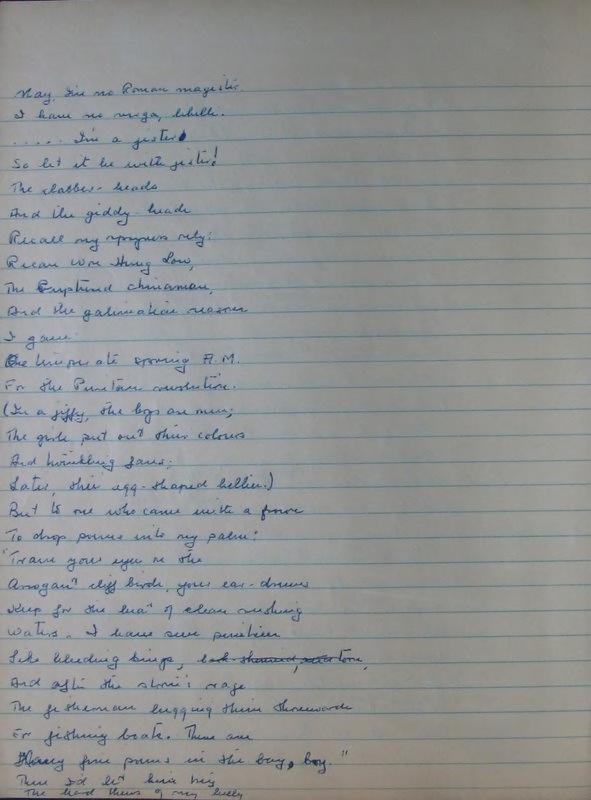 Nay, I'm no Roman magister
I have no virga, libelli.
..... I'm a jester
So let it be with jester!
The clabber-heads
And the giddy heads
Recall my
Recall Won Hung Low,
The chinaman,
And the galimatias reason
I gave
One temperate spring A.M.
For the Puritan revolution.
(In a jiffy, the boys are men;
The girls put out their colours
And twinkling fans;
Later, their egg-shaped bellies.)
But to one who came with a frown
To drop poems into my palm:
"Train your eyes on the
Arrogant cliff birds, your ear-drums
Keep for the beat of clean rushing
Waters. I have seen
Like bleeding kings,
And after the storm's rage
The fisherman lugging them shorewards
For fishing boats. There are
Many fine poems in the bay, boy."
Then I'd let him
The hard of my belly